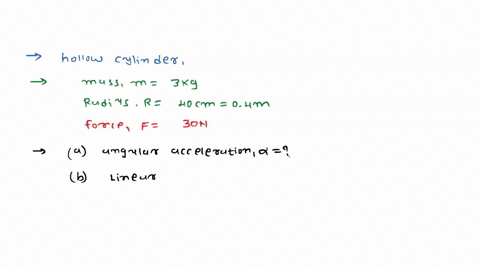 → hollow cylinder,
→ mass, m = 3kg
Radius, R = 40cm = 0.4m
force, F = 30N
→ (a) angular acceleration, α = ?
(b) Linear